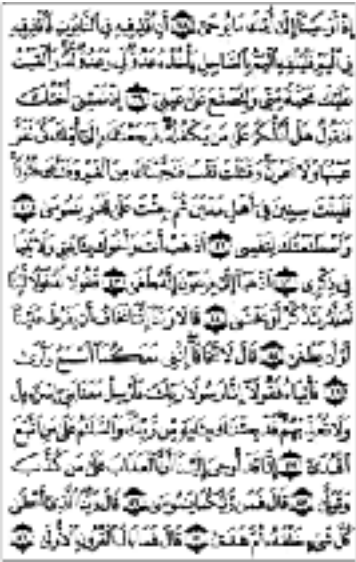 إِذْ أَوْحَيْنَا إِلَىٰ أُمِّكَ مَا يُوحَىٰ ۝ أَنِ اقْذِفِيهِ فِي التَّابُوتِ فَاقْذِفِيهِ
فِي الْيَمِّ فَلْيُلْقِهِ الْيَمُّ بِالسَّاحِلِ يَأْخُذْهُ عَدُوٌّ لِّي وَعَدُوٌّ لَّهُ وَأَلْقَيْتُ
عَلَيْكَ مَحَبَّةً مِّنِّي وَلِتُصْنَعَ عَلَىٰ عَيْنِي ۝ إِذْ تَمْشِي أُخْتُكَ
فَتَقُولُ هَلْ أَدُلُّكُمْ عَلَىٰ مَن يَكْفُلُهُ فَرَجَعْنَاكَ إِلَىٰ أُمِّكَ كَيْ تَقَرَّ
عَيْنُهَا وَلَا تَحْزَنَ وَقَتَلْتَ نَفْسًا فَنَجَّيْنَاكَ مِنَ الْغَمِّ وَفَتَنَّاكَ فُتُونًا
فَلَبِثْتَ سِنِينَ فِي أَهْلِ مَدْيَنَ ثُمَّ جِئْتَ عَلَىٰ قَدَرٍ يَا مُوسَىٰ ۝
وَاصْطَنَعْتُكَ لِنَفْسِي ۝ اذْهَبْ أَنتَ وَأَخُوكَ بِآيَاتِي وَلَا تَنِيَا
فِي ذِكْرِي ۝ اذْهَبَا إِلَىٰ فِرْعَوْنَ إِنَّهُ طَغَىٰ ۝ فَقُولَا لَهُ قَوْلًا لَّيِّنًا
لَّعَلَّهُ يَتَذَكَّرُ أَوْ يَخْشَىٰ ۝ قَالَا رَبَّنَا إِنَّنَا نَخَافُ أَن يَفْرُطَ عَلَيْنَا
أَوْ أَن يَطْغَىٰ ۝ قَالَ لَا تَخَافَا إِنَّنِي مَعَكُمَا أَسْمَعُ وَأَرَىٰ
۝ فَأْتِيَاهُ فَقُولَا إِنَّا رَسُولَا رَبِّكَ فَأَرْسِلْ مَعَنَا بَنِي إِسْرَائِيلَ
وَلَا تُعَذِّبْهُمْ قَدْ جِئْنَاكَ بِآيَةٍ مِّن رَّبِّكَ وَالسَّلَامُ عَلَىٰ مَنِ اتَّبَعَ
الْهُدَىٰ ۝ إِنَّا قَدْ أُوحِيَ إِلَيْنَا أَنَّ الْعَذَابَ عَلَىٰ مَن كَذَّبَ
وَتَوَلَّىٰ ۝ قَالَ فَمَن رَّبُّكُمَا يَا مُوسَىٰ ۝ قَالَ رَبُّنَا الَّذِي أَعْطَىٰ
كُلَّ شَيْءٍ خَلْقَهُ ثُمَّ هَدَىٰ ۝ قَالَ فَمَا بَالُ الْقُرُونِ الْأُولَىٰ ۝